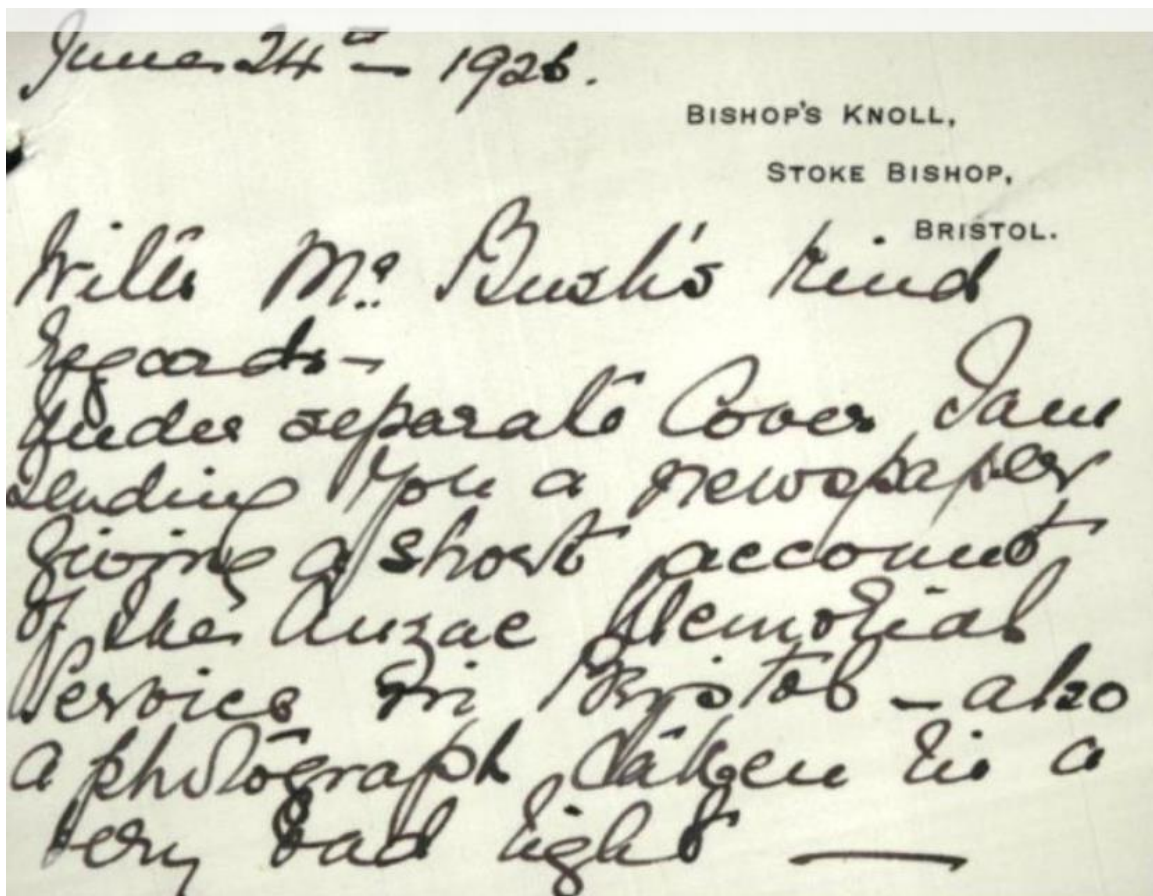 June 24th - 1926.
BISHOP'S KNOLL,
STOKE BISHOP,
BRISTOL.
With Mr. Bush's kind
Regards -
Under separate Cover I am
sending you a newspaper
giving a short account
of the Anzac Memorial
Service in Bristol - also
a photograph taken in a
very bad light —